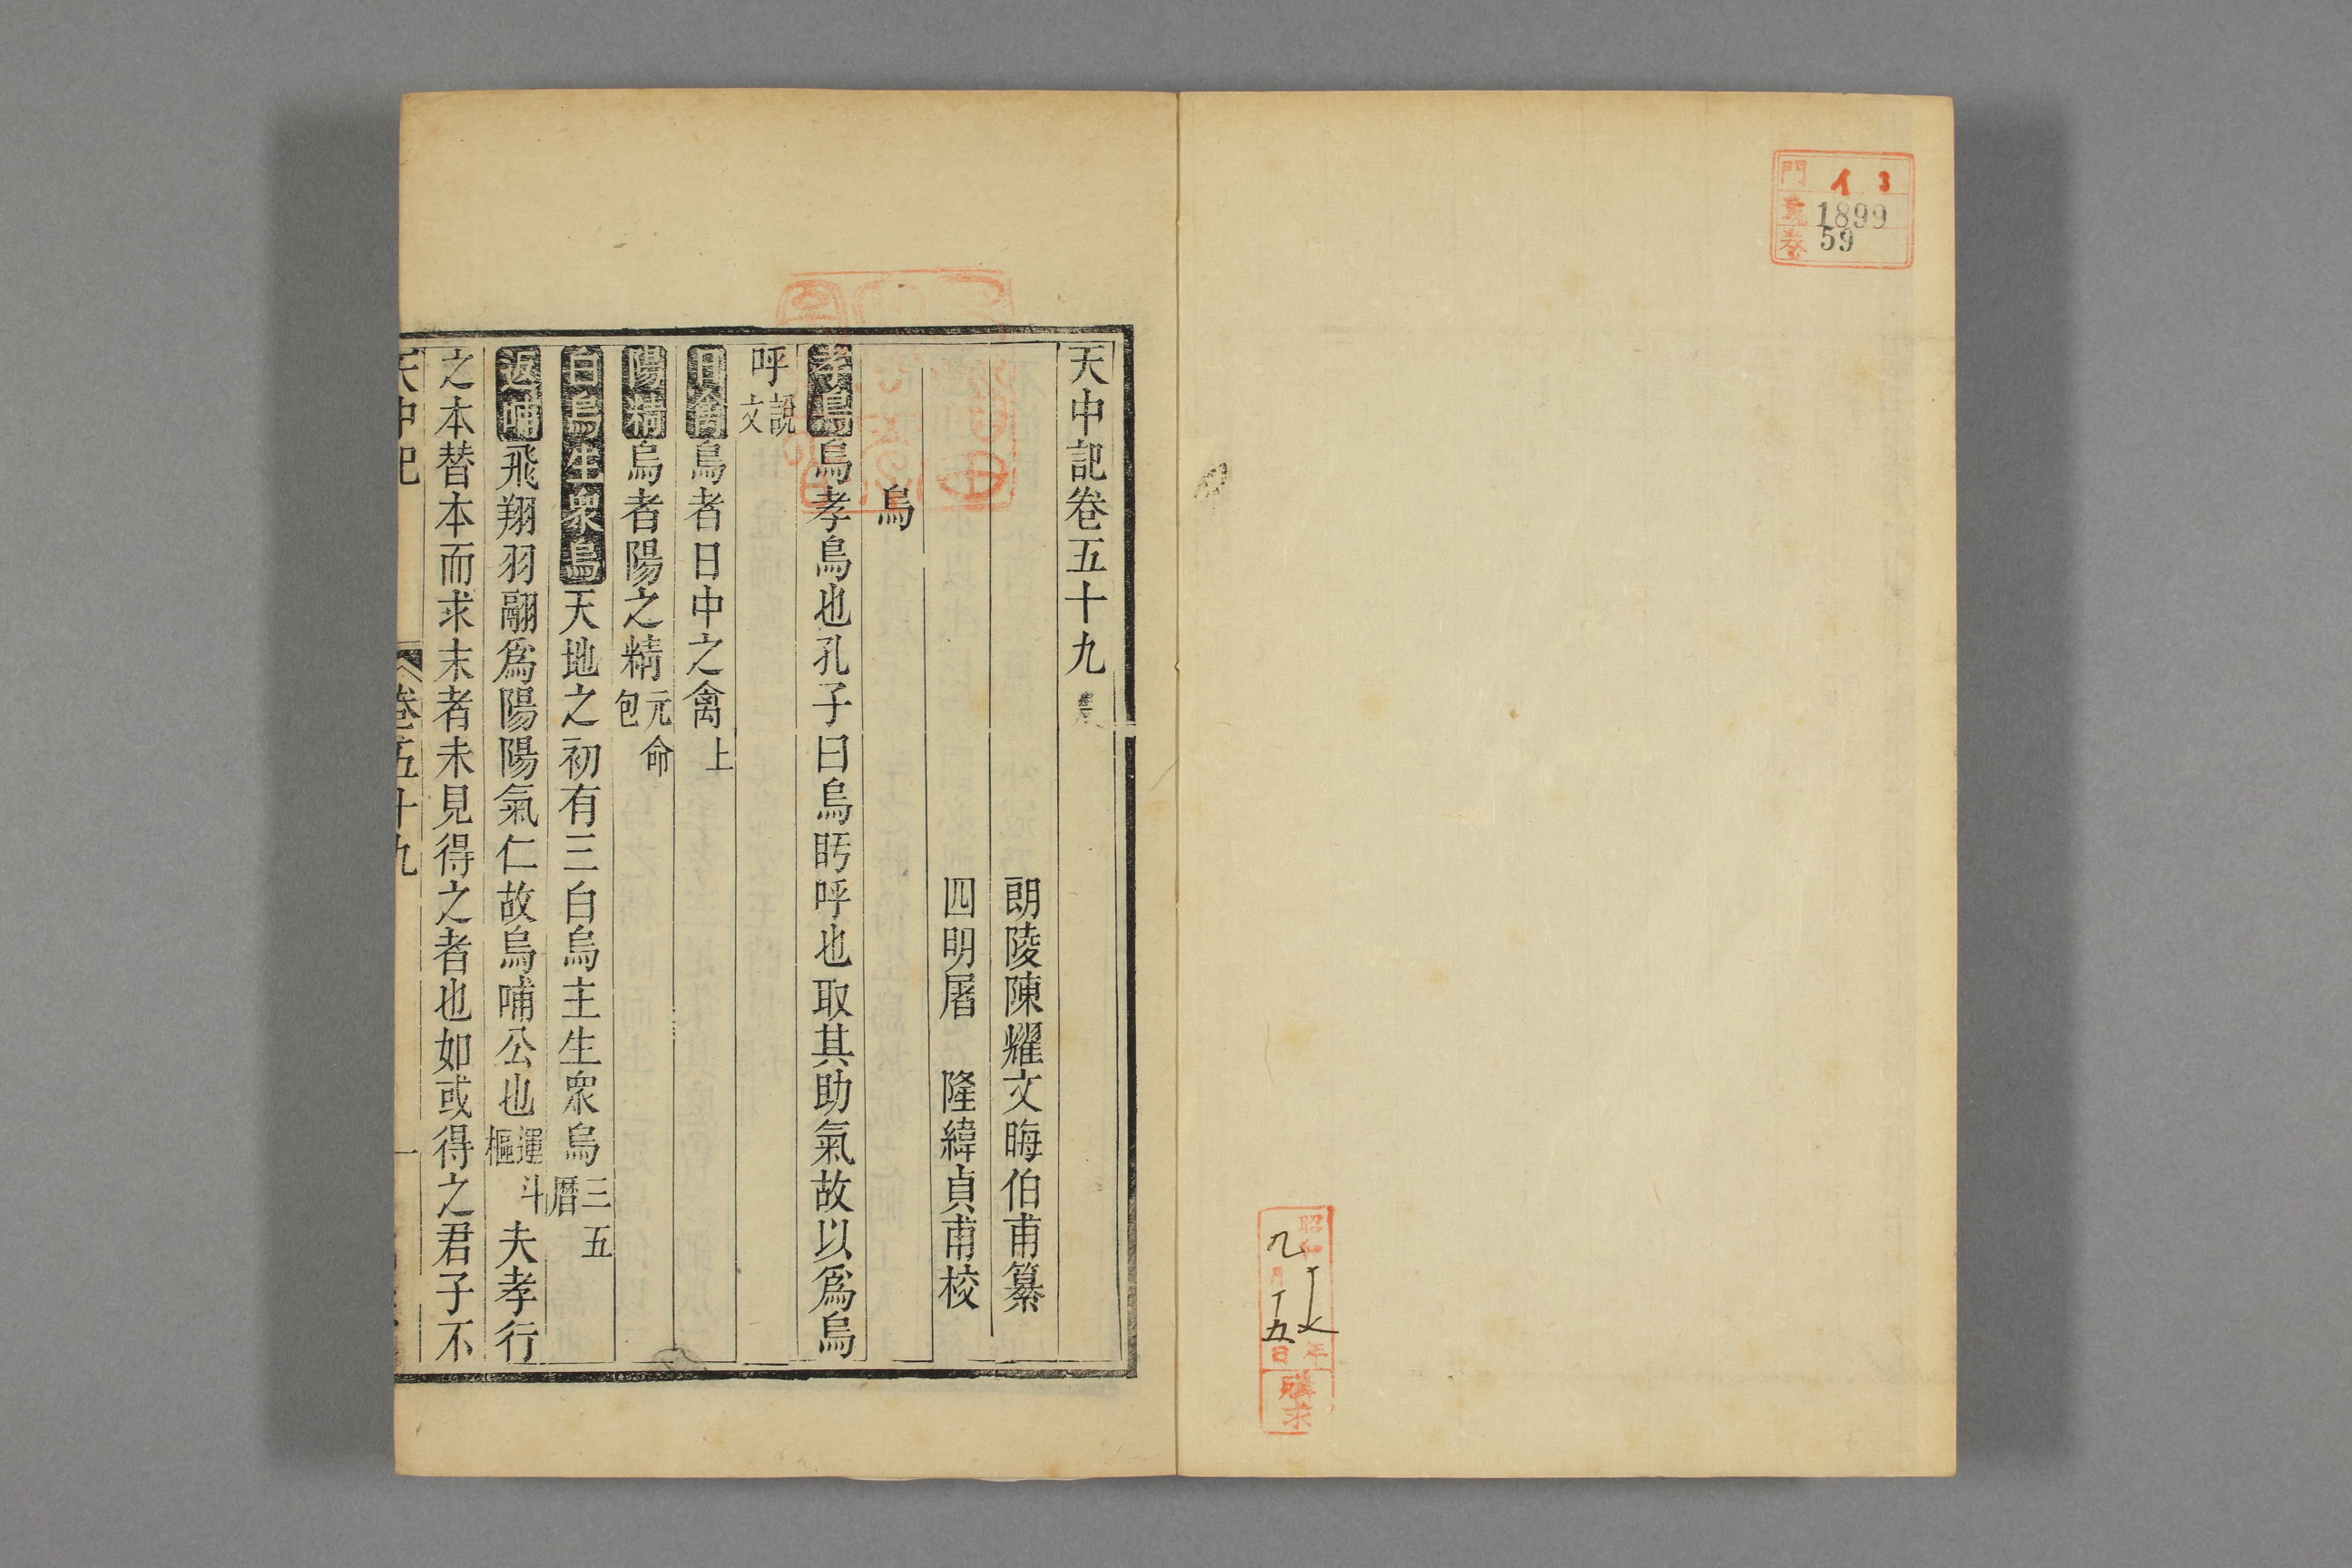 門 イ 3
1899
卷 59
昭和 年
九月十五日
購求
天中記卷五十九
朗陵陳耀文晦伯甫纂
四明屠 隆緯貞甫校
烏
孝烏烏孝鳥也孔子曰烏盱呼也取其助氣故以爲烏
呼說文
日禽烏者日中之禽上
陽精烏者陽之精元命包
白烏生衆烏天地之初有三白烏主生衆烏三五曆
返哺飛翔羽翮爲陽陽氣仁故烏哺公也運斗樞夫孝行
之本替本而求末者未見得之者也如或得之君子不
天中記 卷五十九 一